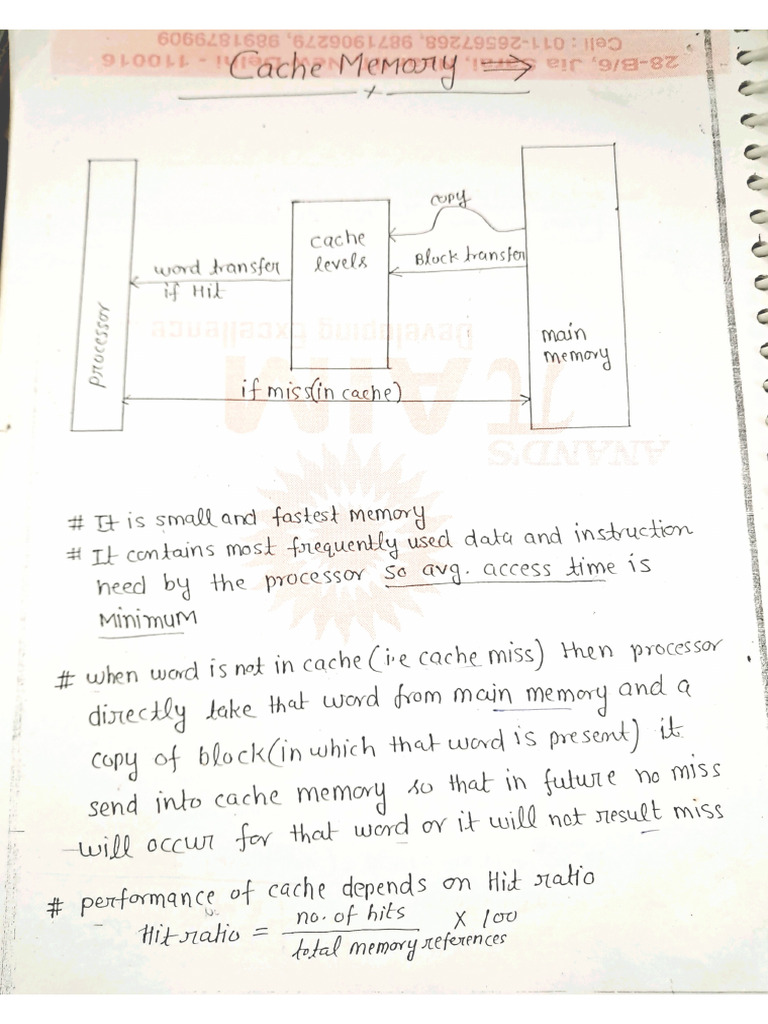 Cache Memory ⇒
processor
word transfer
if Hit
cache
levels
copy
Block transfer
main
memory
if miss(in cache)
# It is small and fastest memory
# It contains most frequently used data and instruction
need by the processor so avg. access time is
Minimum
# when word is not in cache (i.e cache miss) then processor
directly take that word from main memory and a
copy of block (in which that word is present) it
send into cache memory so that in future no miss
will occur for that word or it will not result miss
# performance of cache depends on Hit ratio
Hit ratio = no. of hits / total memory references X 100
Cell : 011-26567268, 9871906279, 9891879909
28-B/6, Jia
Delhi - 110016
Developing Excellence
π AIM
ANAND'S